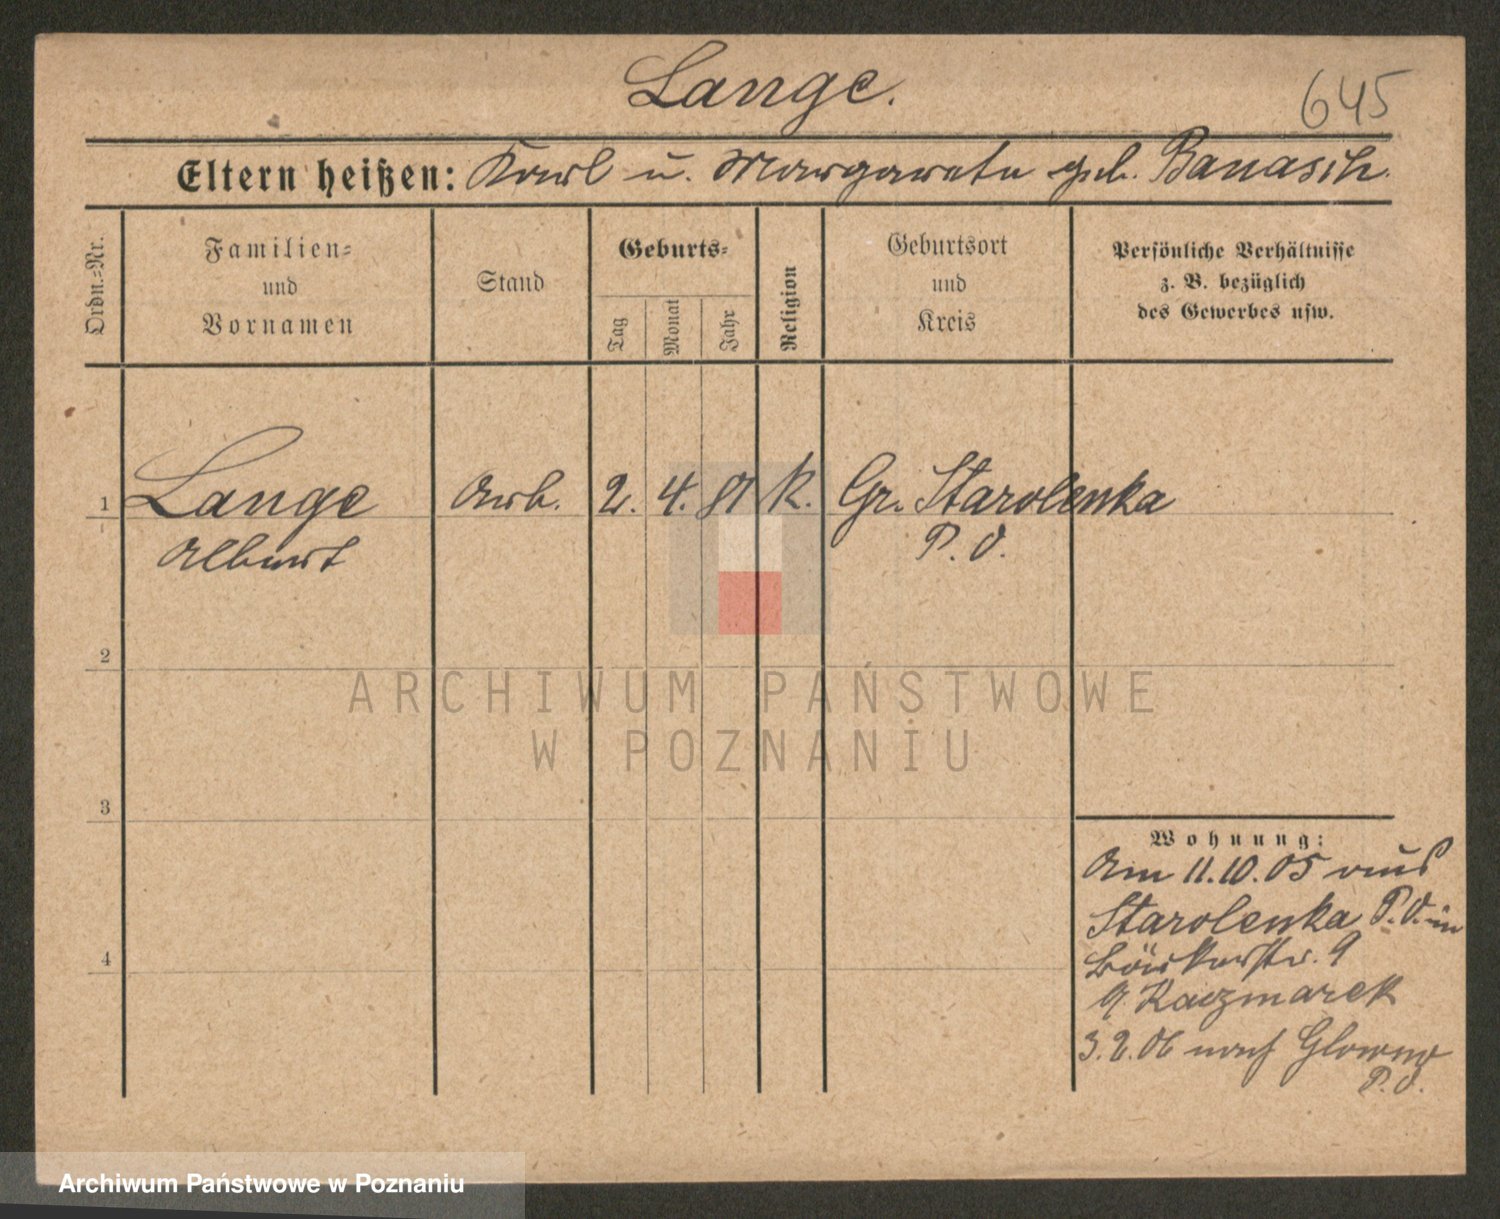 Lange.
645
Eltern heißen: Karl u. Margarete geb. Banasik.
Ordn.-Nr.
Familien-
und
Vornamen
Stand
Geburts-
Tag
Monat
Jahr
Religion
Geburtsort
und
Kreis
Persönliche Verhältnisse
z. B. bezüglich
des Gewerbes usw.
1 Lange Arb. 2. 4. 81 k. Gr. Starolenka
Albert P. O.
2
3
4
ARCHIWUM PAŃSTWOWE
W POZNANIU
Wohnung:
Am 11.10.05 aus
Starolenka P. O. in
Bäckerstr. 9
Kaczmarek
3.2.06 nach Glowno
P. O.
Archiwum Państwowe w Poznaniu